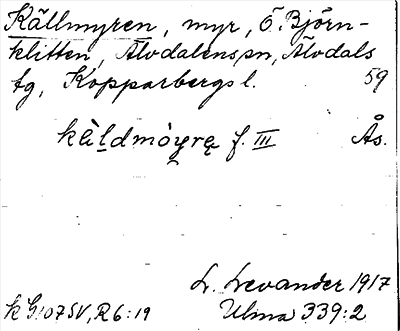 Källmyren, myr, Ö. Björn-
klitten, Älvdalens sn, Älvdals
tg, Kopparbergs l. 59
kè̀ldmòyrą f. III Ås.
L. Levander 1917
k G107SV, R6:19 Ulma 339:2